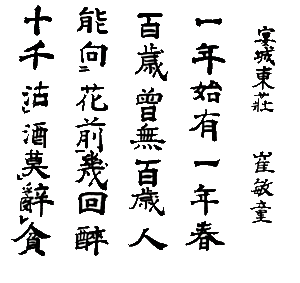 宴城東莊　崔敏童
一年始有一年春
百歲曾無百歲人
能向花前幾回醉
十千沽酒莫辭貪